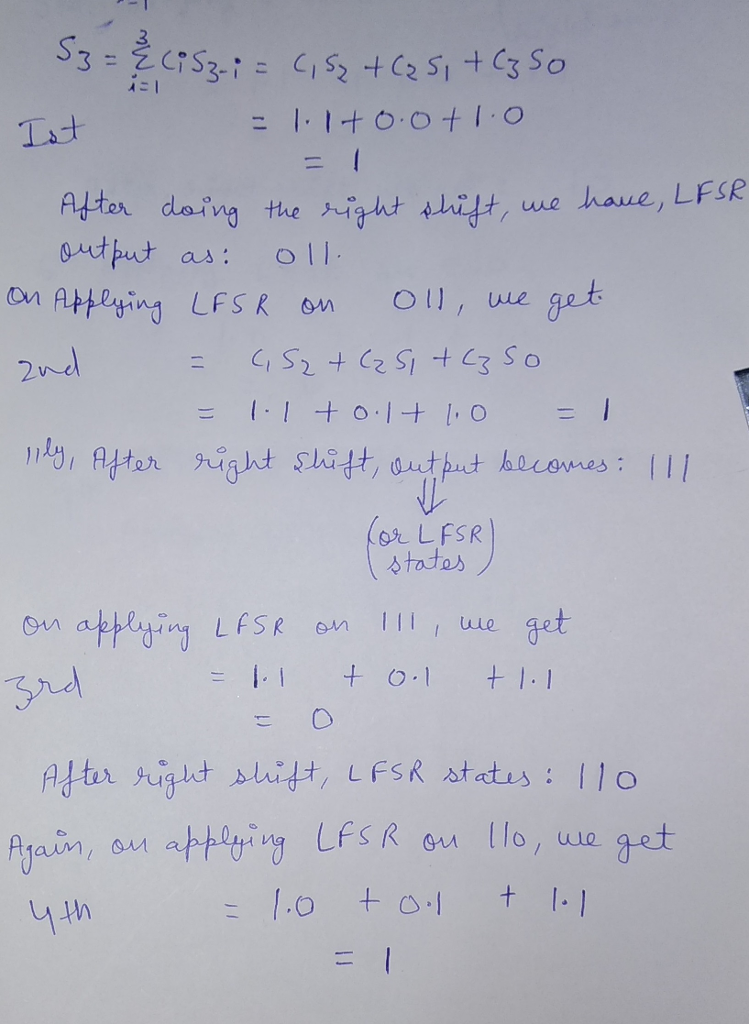 S3 = 3 Σ i=1 CiS3-i = C1S2 + C2S1 + C3S0
Ist = 1.1 + 0.0 + 1.0
= 1
After doing the right shift, we have, LFSR
output as: 011.
On Applying LFSR on 011, we get
2nd = C1S2 + C2S1 + C3S0
= 1.1 + 0.1 + 1.0 = 1
11ly, After right shift, output becomes: 111
⇓
(or LFSR
states)
on applying LFSR on 111, we get
3rd = 1.1 + 0.1 + 1.1
= 0
After right shift, LFSR states: 110
Again, on applying LFSR on 110, we get
4th = 1.0 + 0.1 + 1.1
= 1